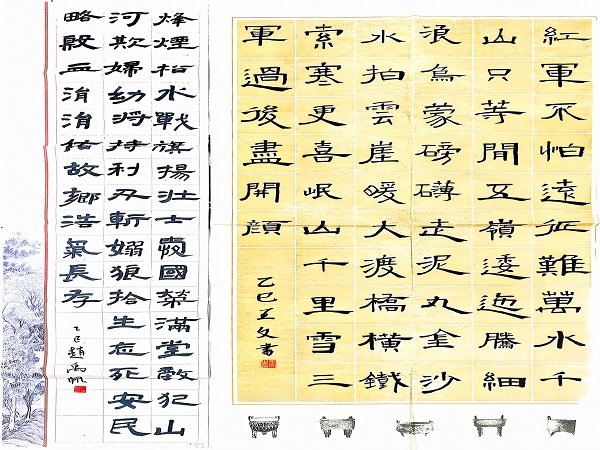 紅軍不怕遠征難萬水千
山只等間五嶺逶迤騰細
浪烏蒙磅礴走泥丸金沙
水拍雲崖暖大渡橋橫鐵
索寒更喜岷山千里雪三
軍過後盡開顏
乙巳 文書
烽煙柏水戰旗揚壯士愛國榮滿堂敵犯山
河欺婦幼將持利刃斬狼拾生忘死安民
略殷血涓涓佑故鄉浩氣長存
乙巳趙禹帆